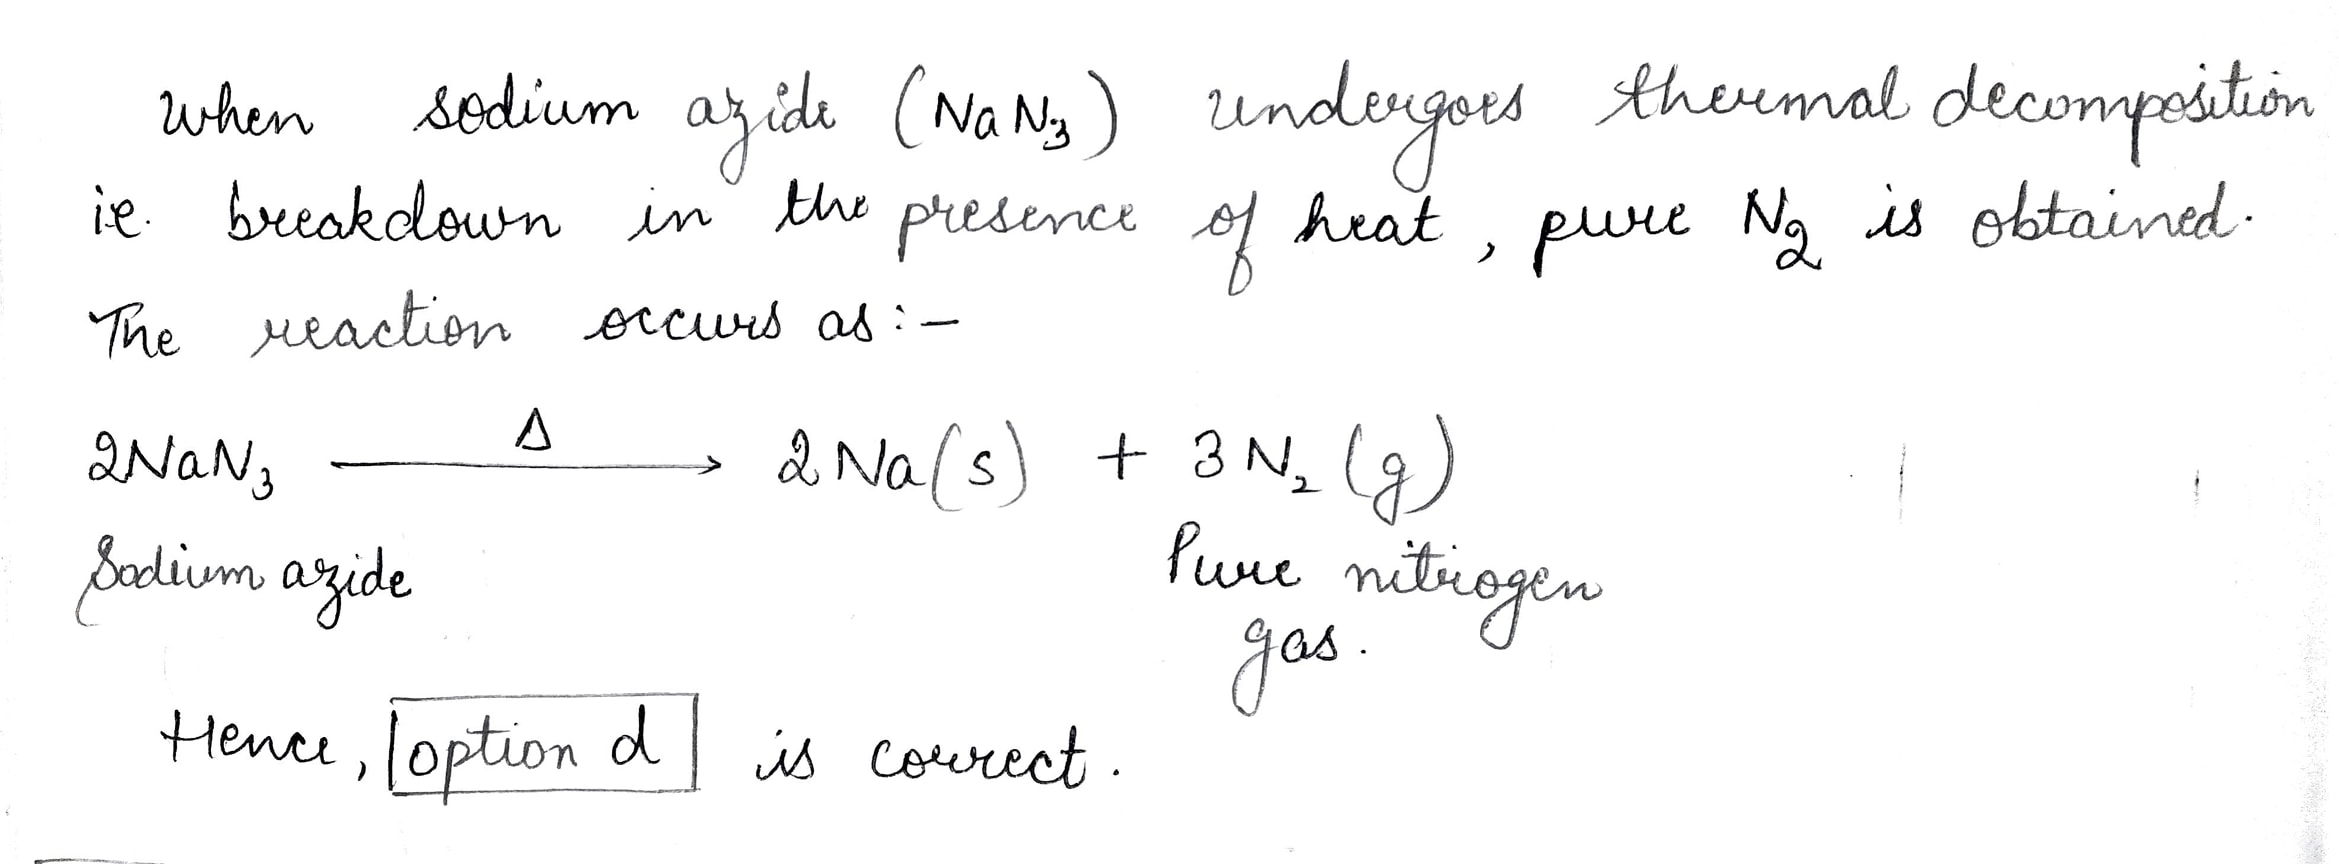 When sodium azide (NaN₃) undergoes thermal decomposition
ie. breakdown in the presence of heat, pure N₂ is obtained.
The reaction occurs as :-
2NaN₃ —Δ→ 2Na(s) + 3N₂(g)
Sodium azide Pure nitrogen
gas.
Hence, option d is correct.